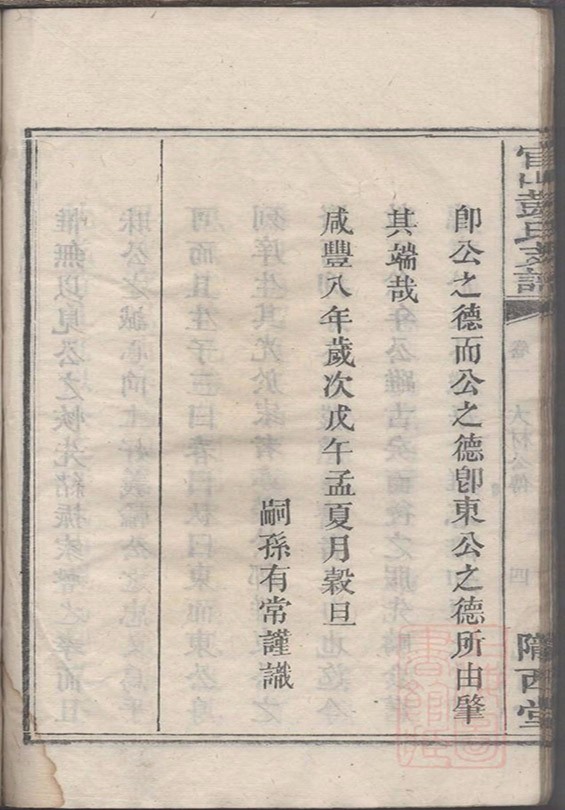 官山彭氏支譜
卷
大材公傳
四
隴西堂
卽公之德而公之德卽東公之德所由肇
其端哉
咸豐八年歲次戊午孟夏月穀旦
嗣孫有常謹識